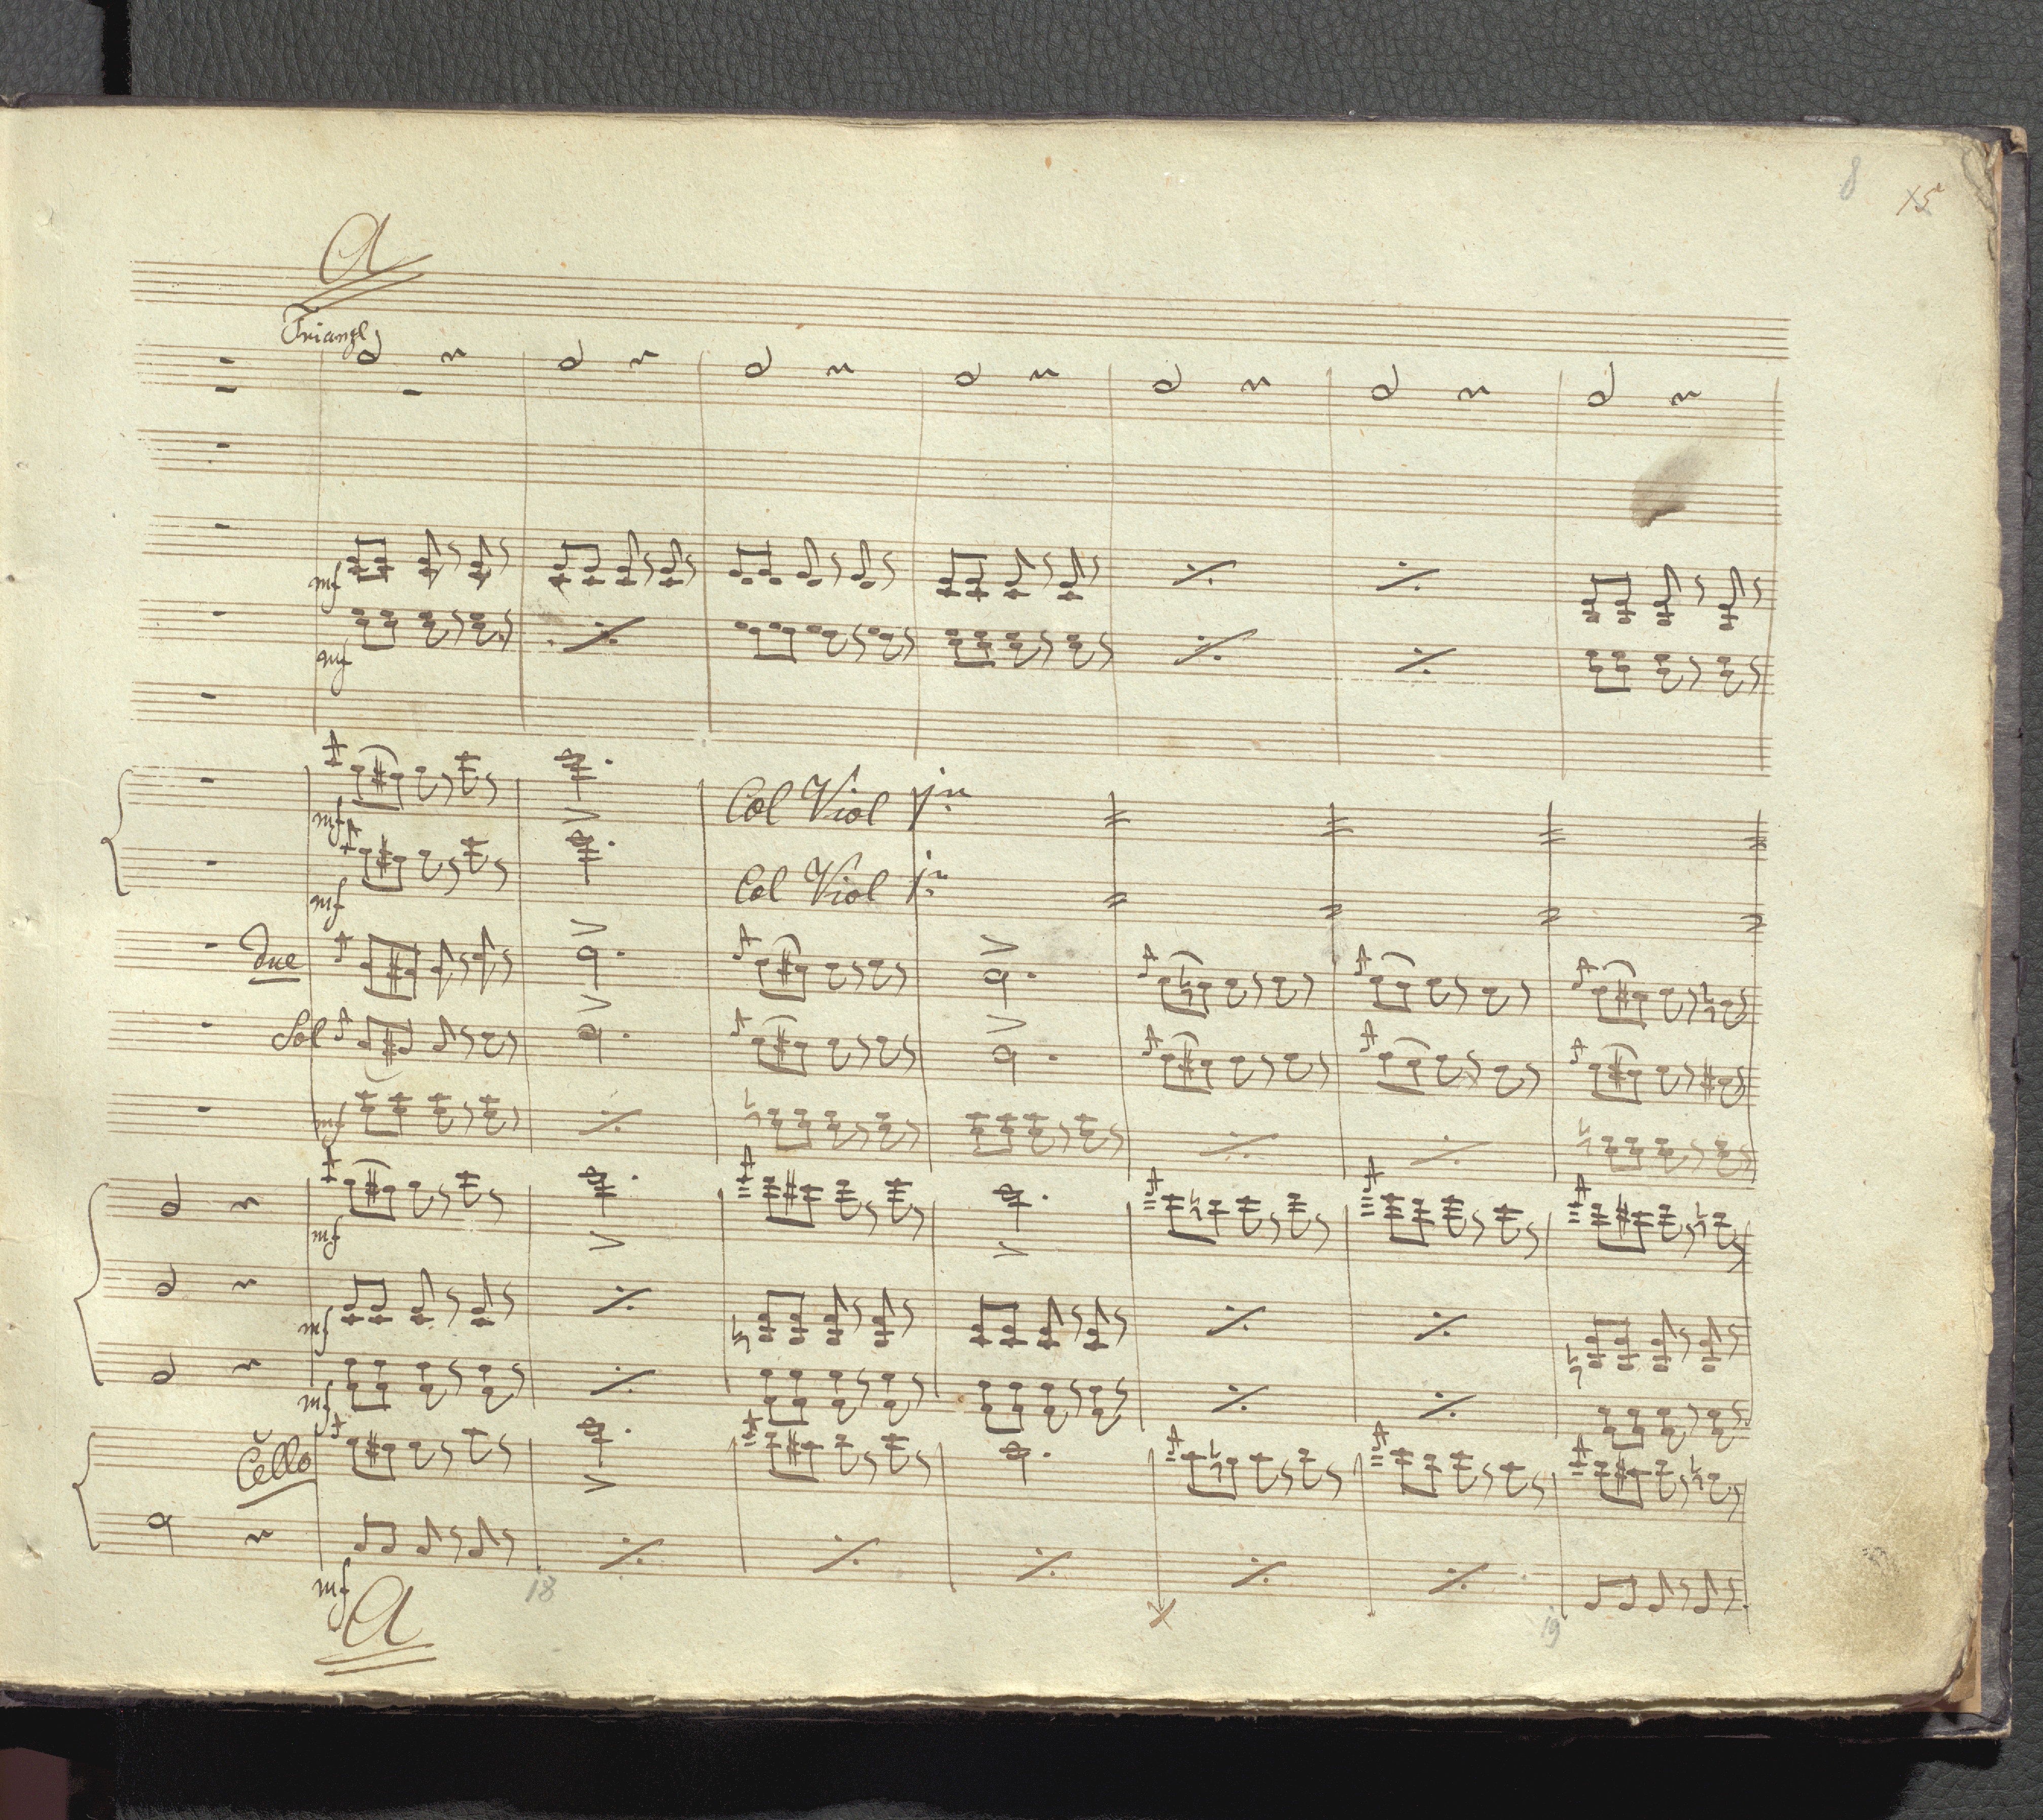 8 15
A
Triangl
mf
mf
mf
Col Viol 1mo
mf
Col Viol 1mo
due
Sol
mf
mf
mf
mf
Cello
mf
18
19
A